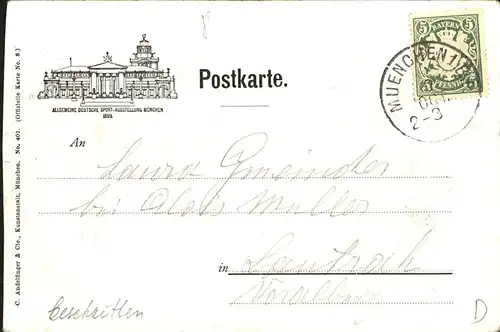 8
5 BAYERN 5
PFENNIG
MUENCHEN 1
2-3
Postkarte.
ALLGEMEINE DEUTSCHE SPORT-AUSSTELLUNG MÜNCHEN
1899.
C. Andelfinger & Cie., Kunstanstalt, München. No. 401. (Offizielle Karte No. 8.)
An
Laura Gmeinder
bei Alois Müller
in Lautrach
Beschnitten
D